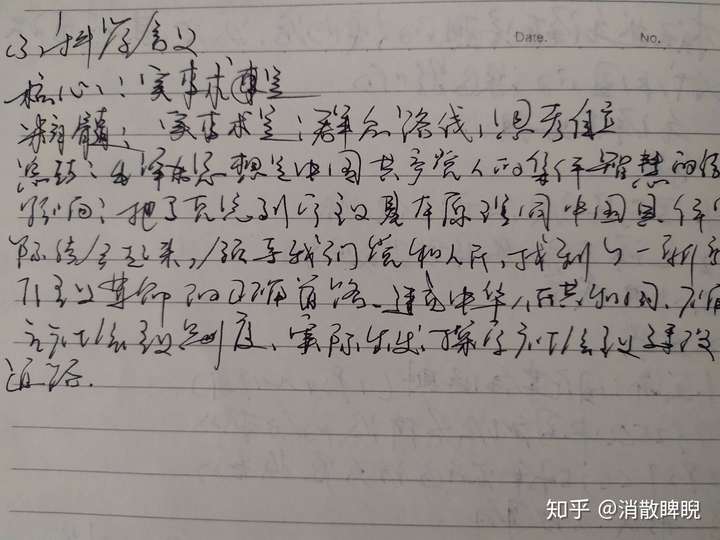 Date.
No.
科学含义
核心：实事求是
精髓：实事求是；群众路线；
毛泽东思想是中国共产党人的集体智慧的结
把马克思列宁主义基本原理同中国具体
际结合起来，领导我们党和人民，找到了一条新
主义革命的正确道路 建立中华人民共和国
立社会主义制度，探索社会主义建设
道路.
知乎 @消散睥睨